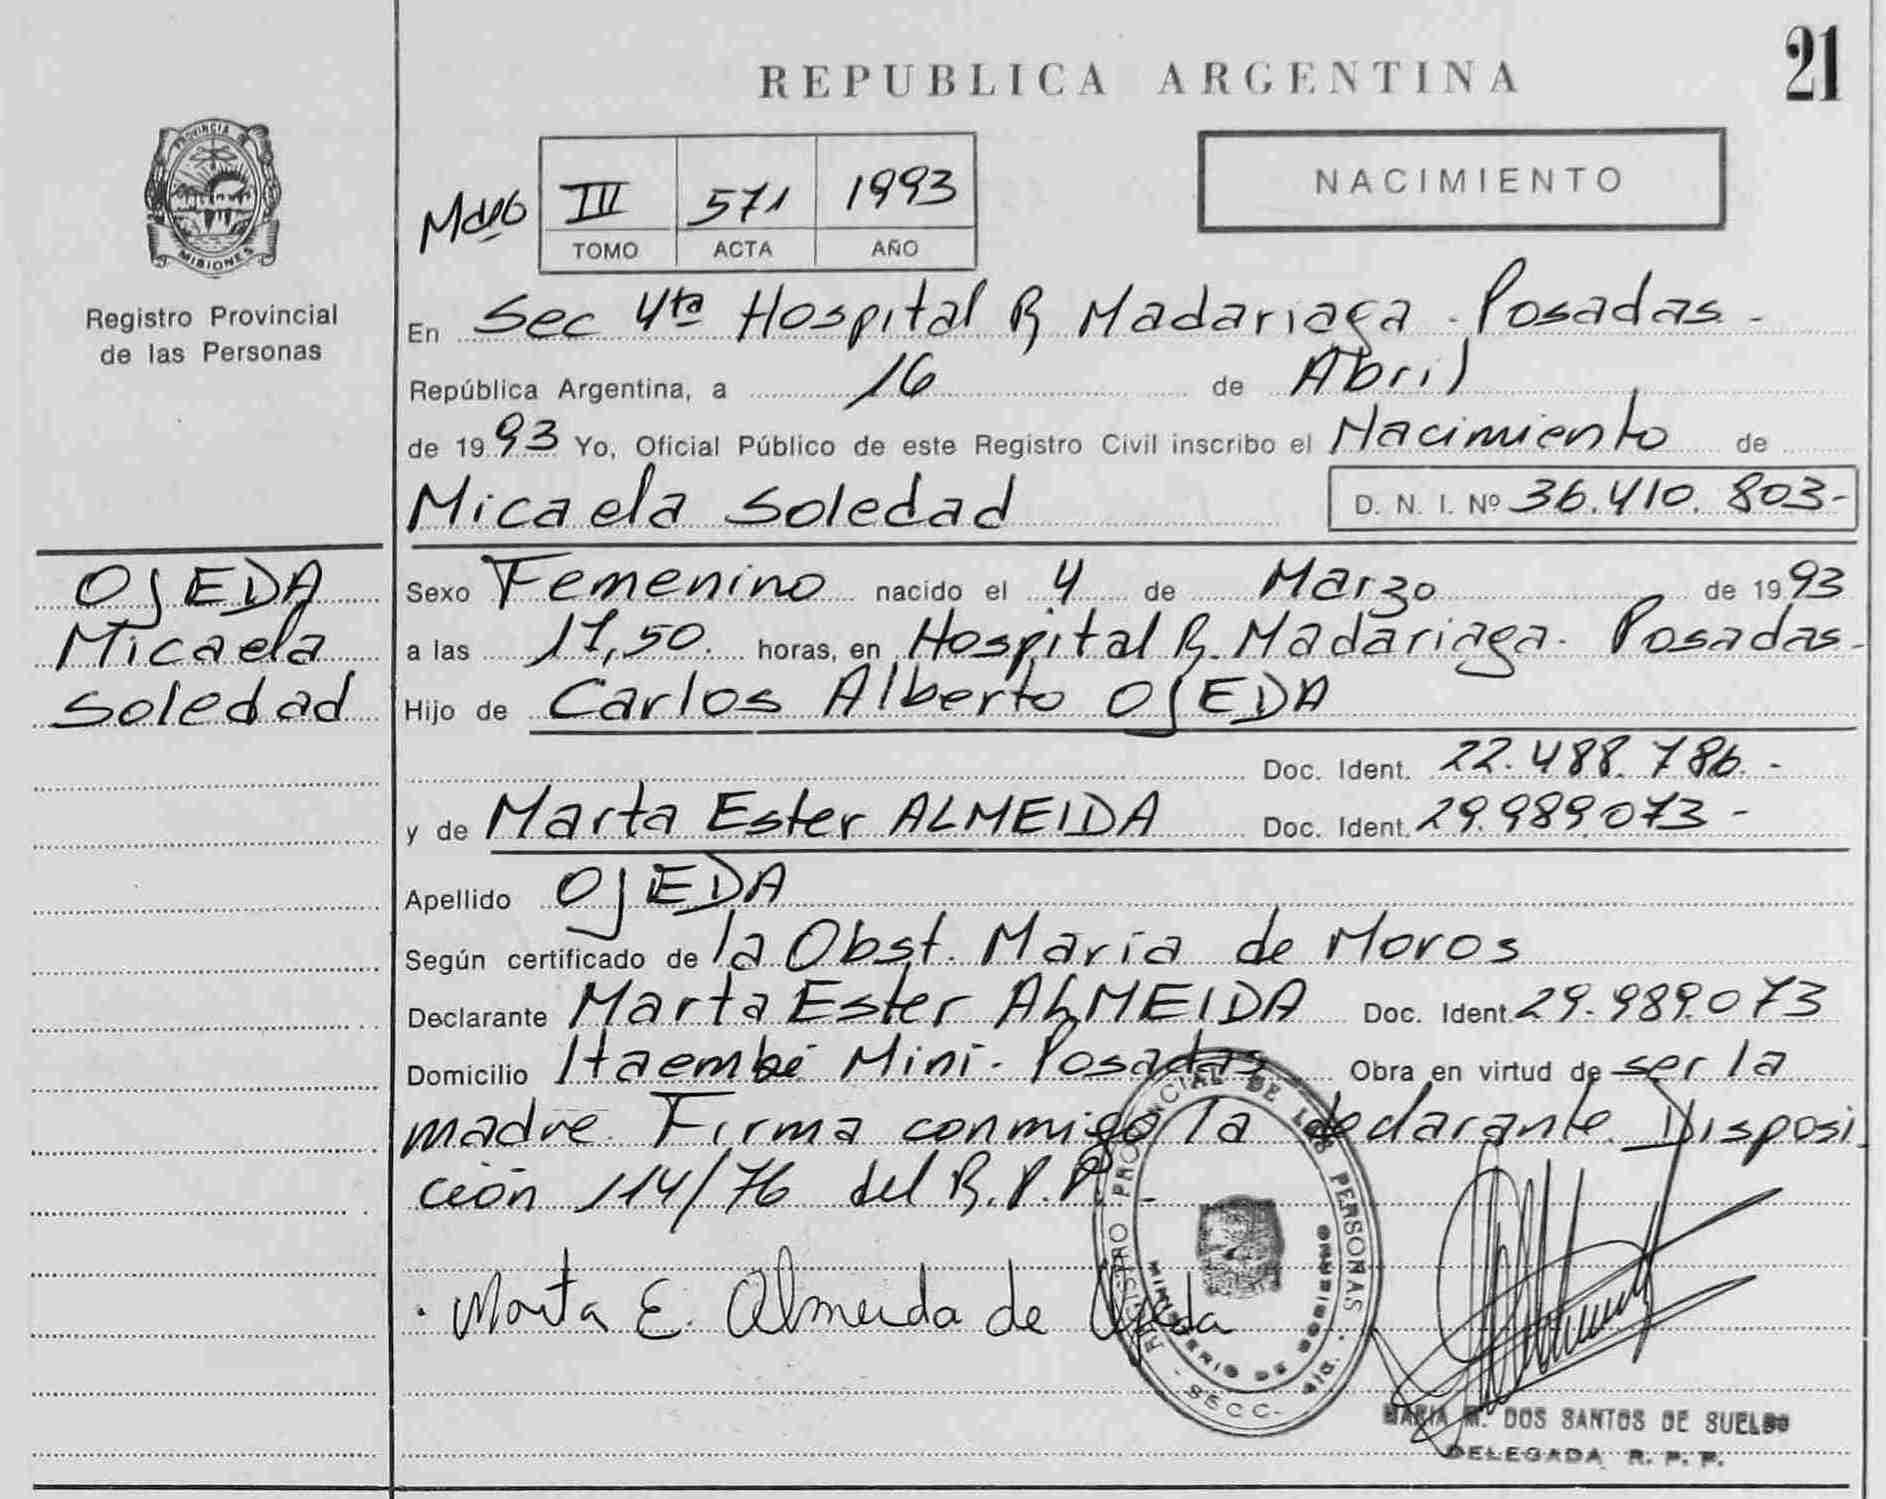 21
REPUBLICA ARGENTINA
PROVINCIA DE
MISIONES
Registro Provincial
de las Personas
NACIMIENTO
III 571 1993
TOMO ACTA AÑO
En Sec 4ta Hospital R Madariaga - Posadas -
República Argentina, a 16 de Abril
de 1993 Yo, Oficial Público de este Registro Civil inscribo el Nacimiento de
Micaela Soledad D. N. I. Nº 36.410.803-
OJEDA
Micaela
Soledad
Sexo Femenino nacido el 4 de Marzo de 1993
a las 11,50. horas, en Hospital R. Madariaga - Posadas -
Hijo de Carlos Alberto OJEDA
Doc. Ident. 22.488.786.-
y de Marta Ester ALMEIDA Doc. Ident. 29.989.073-
Apellido OJEDA
Según certificado de la Obst. Maria de Moros
Declarante Marta Ester ALMEIDA Doc. Ident. 29.989.073
Domicilio Itaembé Mini - Posadas Obra en virtud de ser la
madre. Firma conmigo la declarante. Disposi
ción 114/76 del R.P.P.
Marta E. Almeida de Ojeda
REGISTRO PROVINCIAL DE LOS PERSONAS
MINISTERIO DE GOBIERNO
SECC.
MARIA M. DOS SANTOS DE SUELDO
DELEGADA R. P. P.